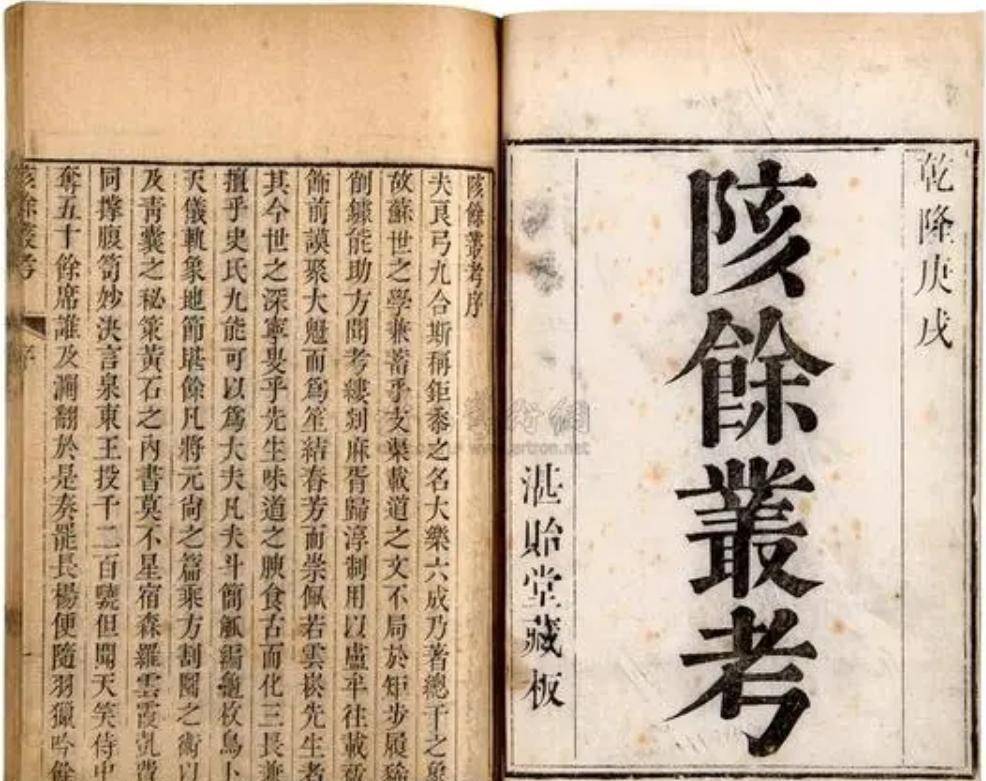 乾隆庚戌
陔餘叢考
湛貽堂藏板
陔餘叢考序
夫良弓九合斯稱鉅黍之名大樂六成乃著總干之象
故蘇世之學兼蓄乎支渠載道之文不局於矩步履豨
削鏽能助方聞考縷刲麻胥歸淳制用以盧牟往載
飾前謨聚大魁而爲笙結春芳而崇佩若雲崧先生者
其今世之深寧叟乎先生味道之腴食古而化三長兼
擅乎史氏九能可以爲大夫凡夫斗簡觚編龜枚鳥卜
天儀軌象地節堪餘凡將元尚之篇乘方割圜之術以
及靑囊之秘策黃石之內書莫不星宿森羅雲霞
同撑腹笥妙決言泉東王投千二百驍但聞天笑侍中
奪五十餘席誰及瀾翻於是奏罷長楊便隨羽獵吟餘
陔餘叢考
序